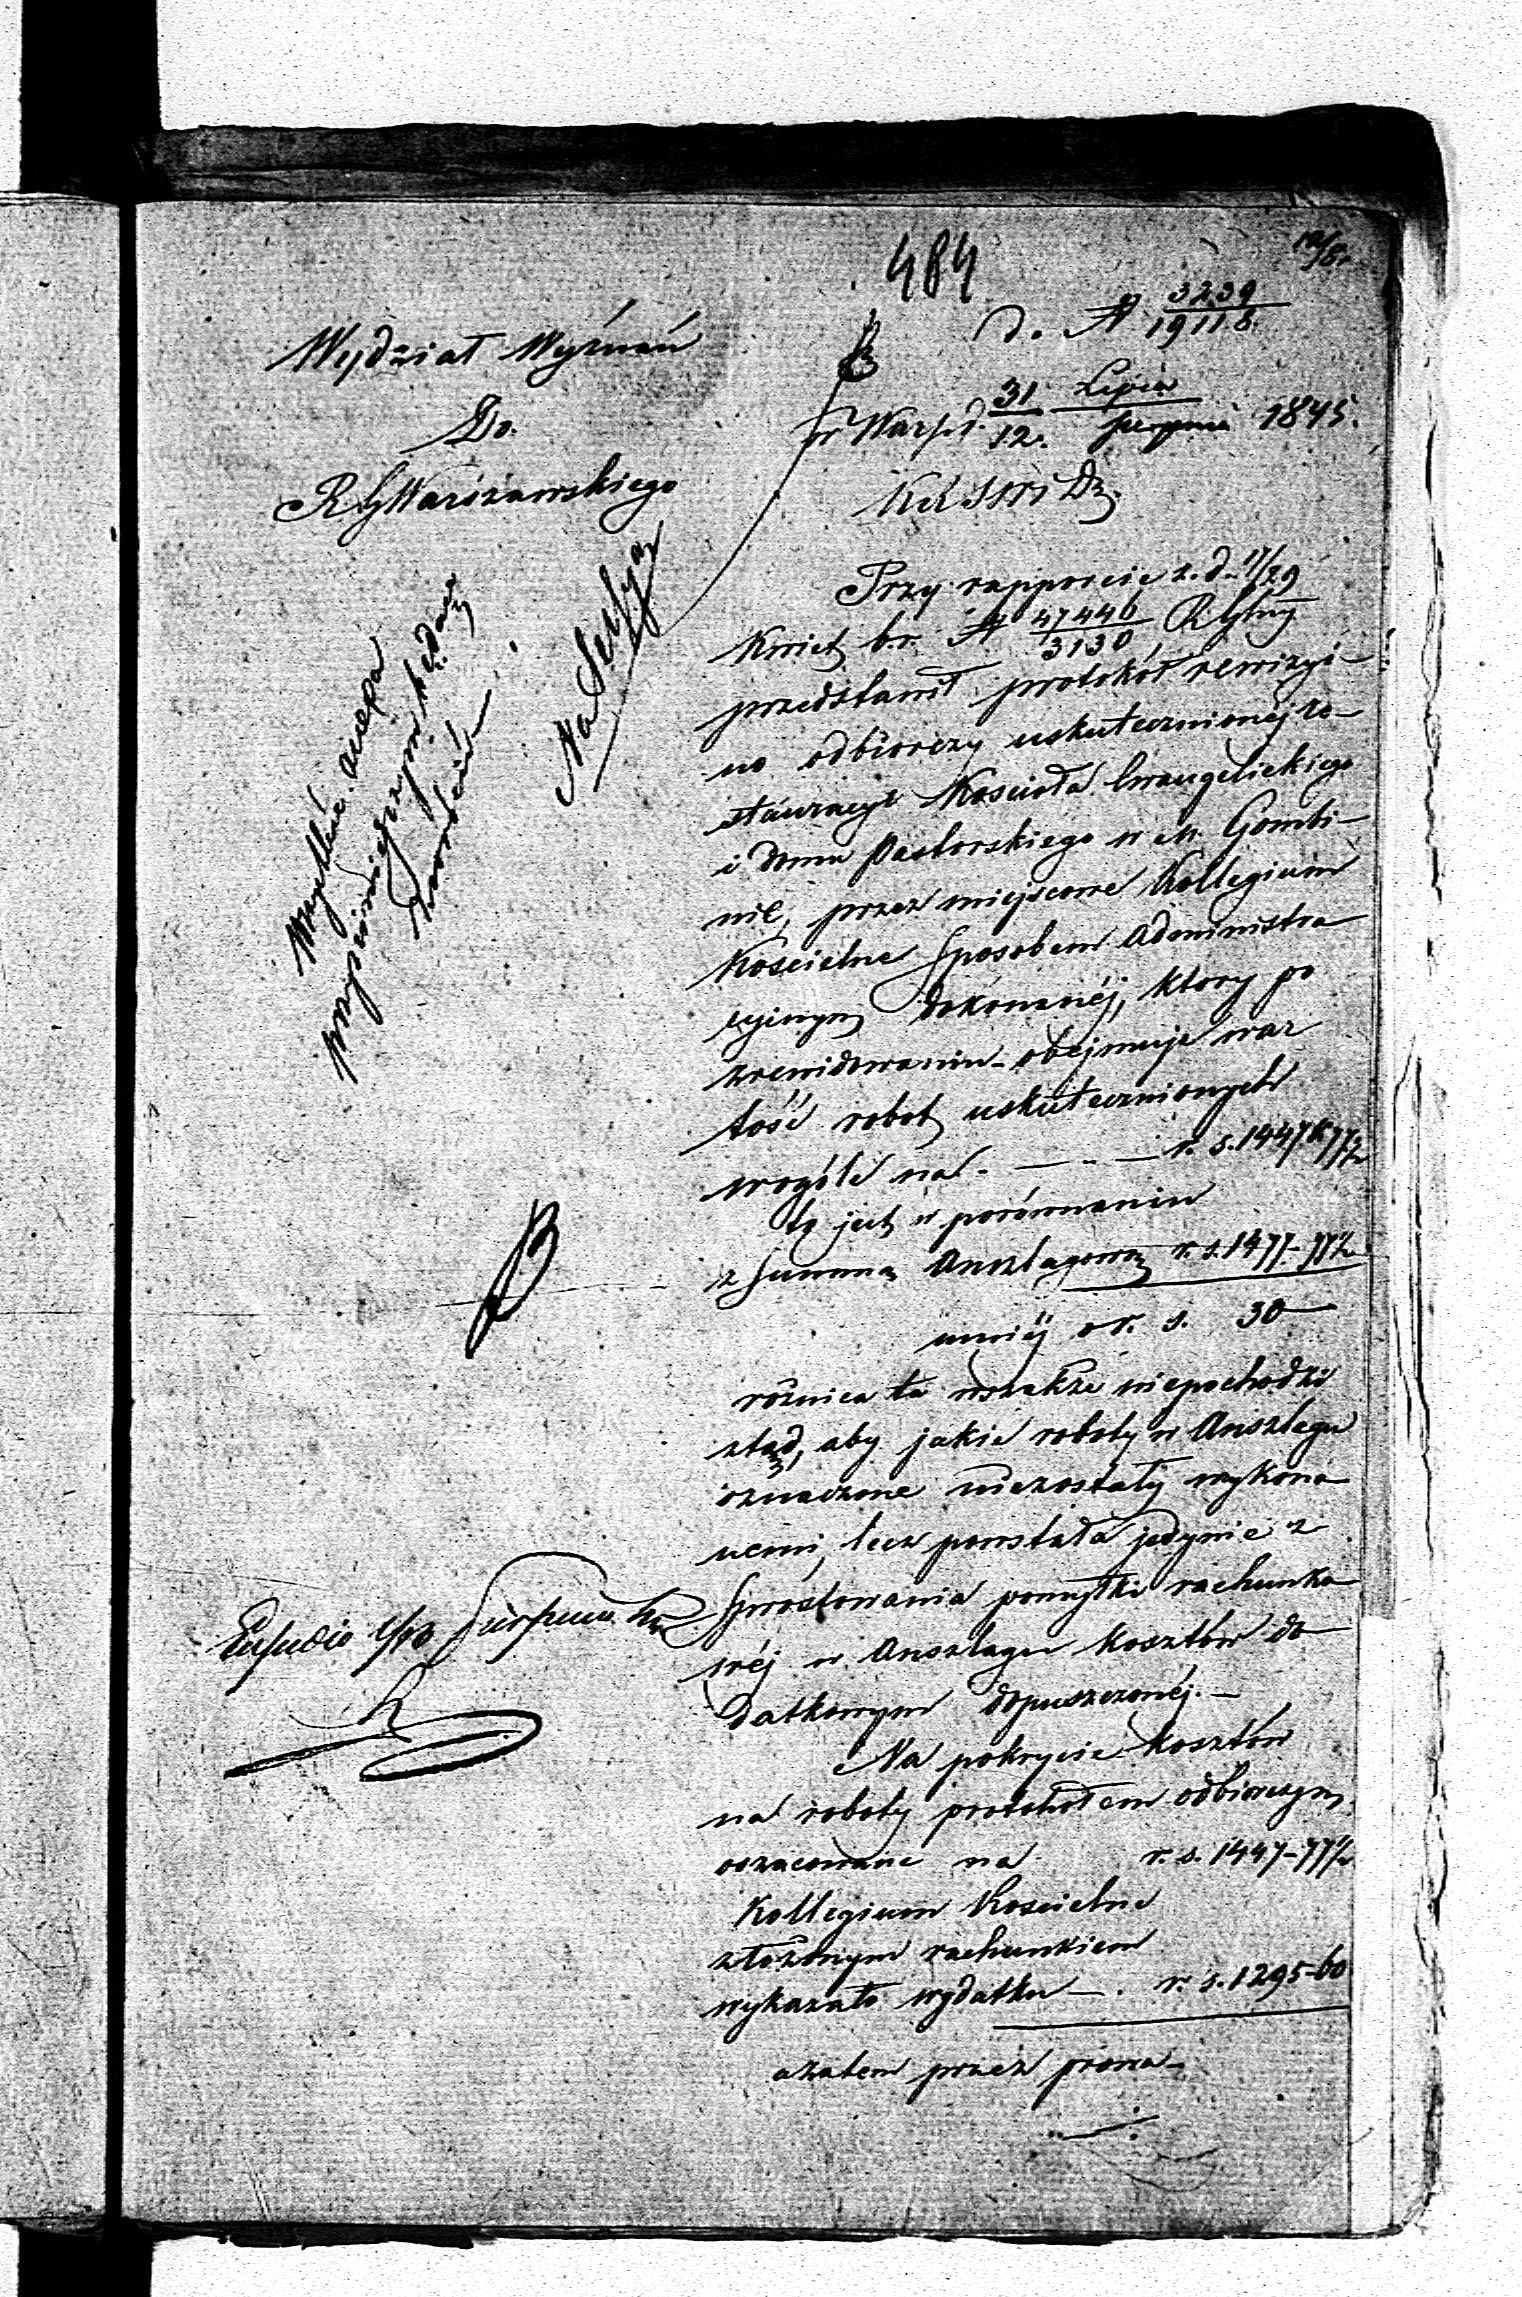 484
12/8.
d. N 3239/19118.
Wydział Wyznań
Do
RGWarszawskiego
w Warsz. d. 31/12. Lipca/Sierpnia 1845.
KRSWiD.
Na Sessyą
Przy rapporcie z. d. 17/29
Kwiet. b.r. N 47446/3130 RGlny
przedstawił protokół rewizyi-
no odbiorczy uskutecznionéj re-
stauracyi Kościoła Ewangelickiego
i domu Pastorskiego w M. Gombi-
nie, przez miejscowe Kollegium
Kościelne sposobem Administra
cyjnym dokonanéj, ktory po
zrewidowaniu obejmuje war
tość robot uskutecznionych
wogóle na - r. s. 1447 k 77½
to jest w porównaniu
z summą Anszlagową r. s. 1477-77½
mniéj o r. s. 30
różnica ta wszakże niepochodzi
ztąd, aby jakie roboty w Anszlagu
oznaczone niezostały wykona
nemi, lecz powstała jedynie z
sprostowania pomyłki rachunko
wéj w Anszlagu kosztów do
datkowym dopuszczonéj. -
Na pokrycie kosztów
na roboty protokołem odbiorczym
oszacowane na r. s. 1447-77½
Kollegium Kościelne
złożonym rachunkiem
wykazało wydatku - . r. s. 1295-60
azatem przez prowa-